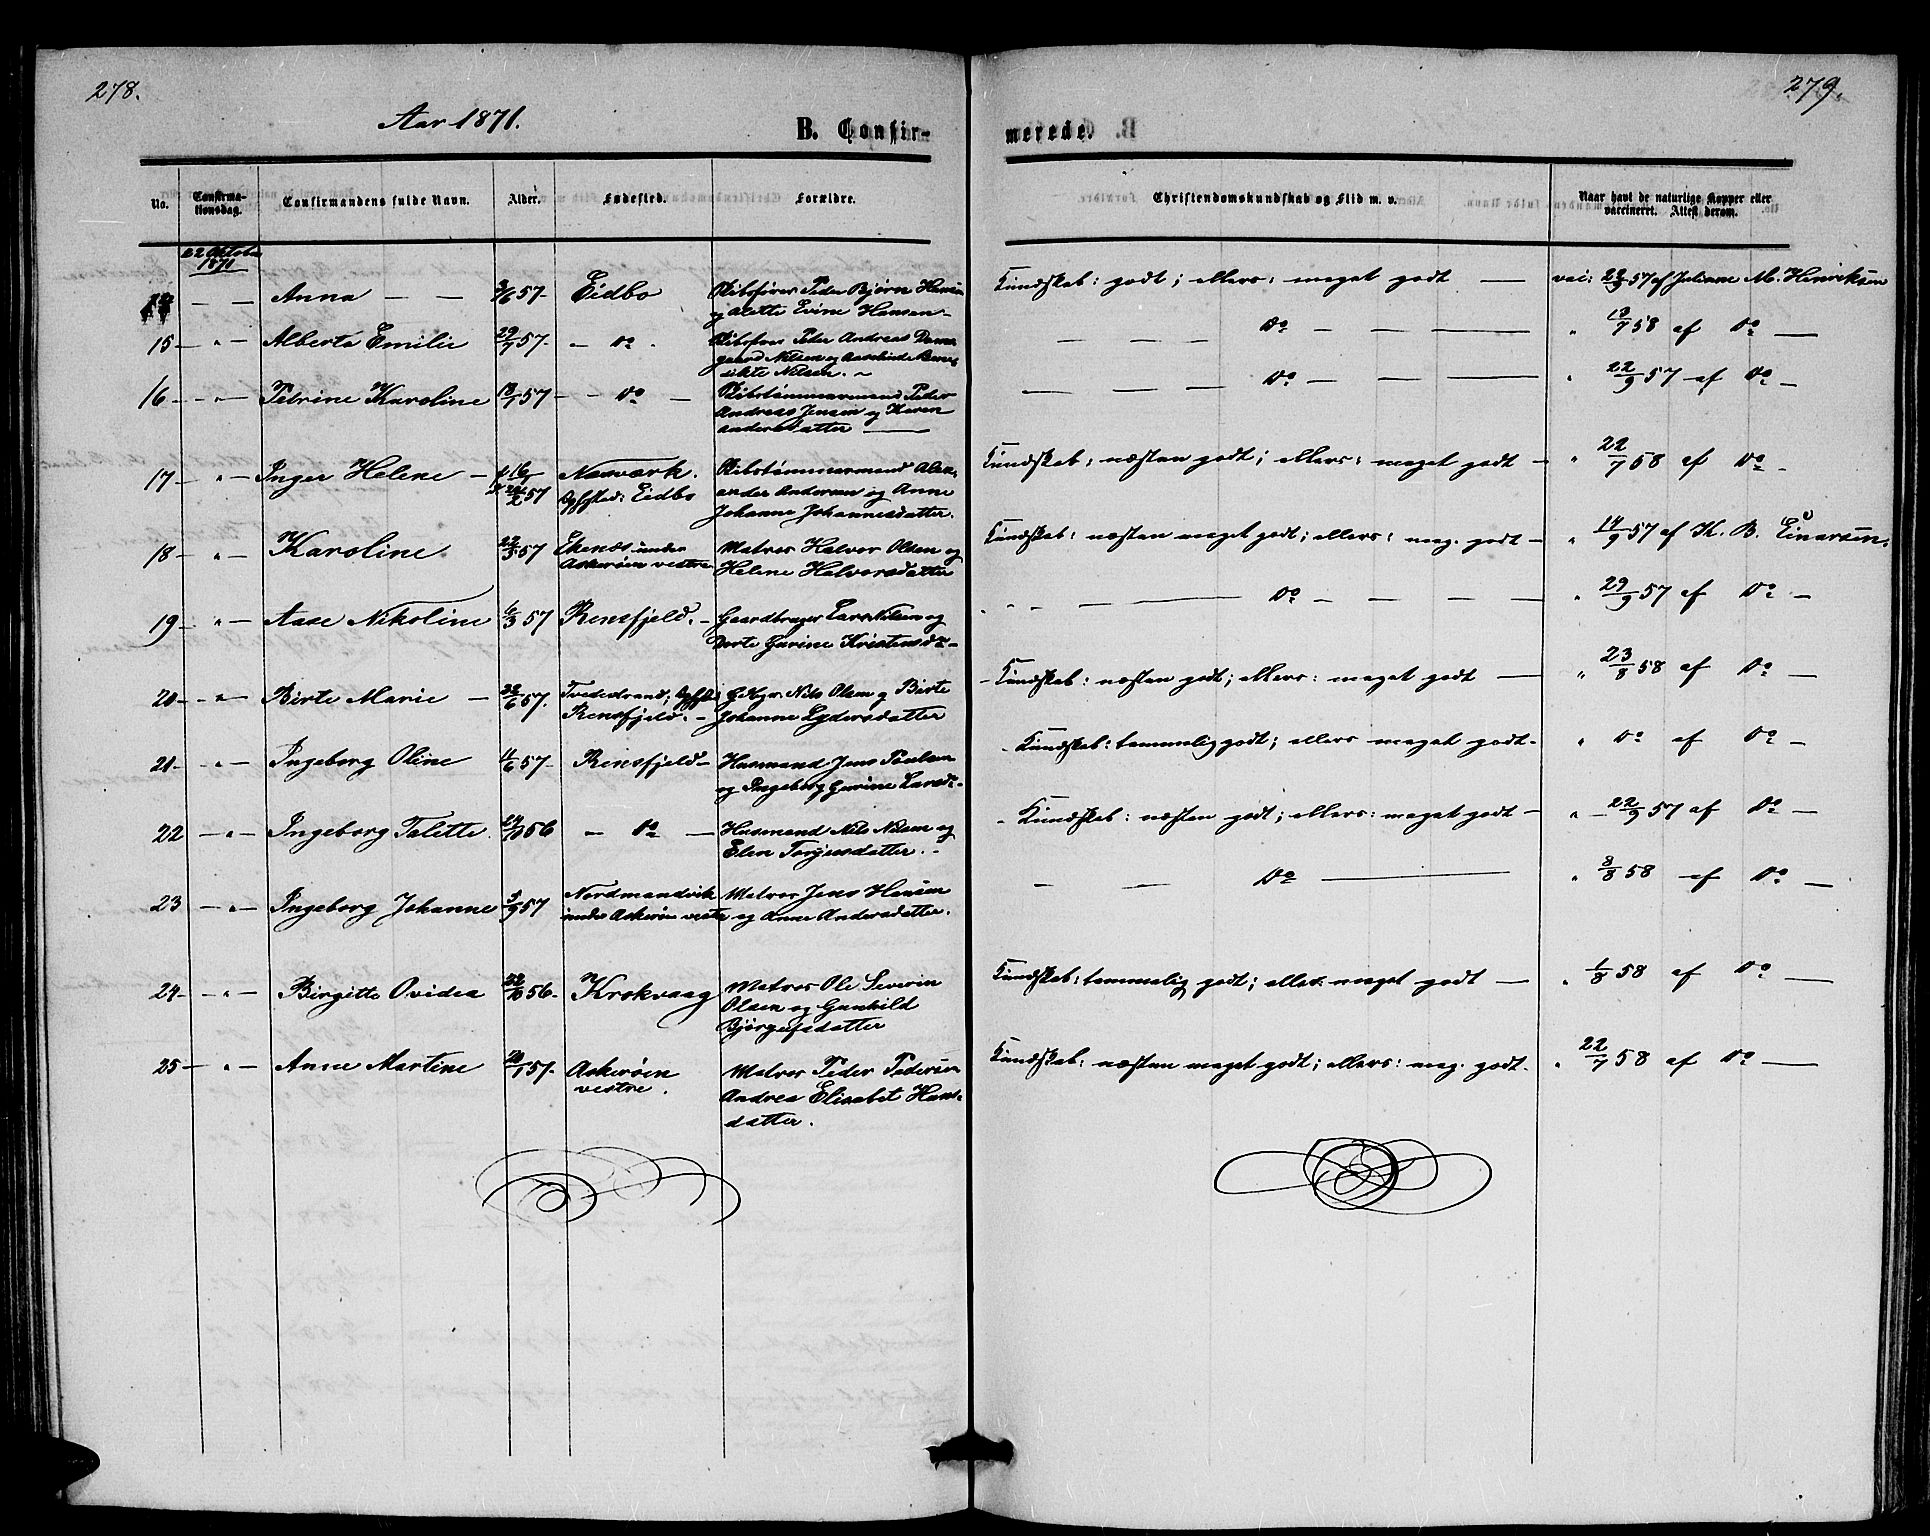 278.
Aar 1871.
B. Confir-
No.
Confirma-
tionsdag.
Confirmandens fulde Navn.
Alder.
Fødested.
Forældre.
22 Oktober
1871
14 — — Anna — — 3/6 57- Eidbo Skibsfører Peder Bjørn Hansen
og Alette Evine Hansen -
15 - " - Alberta Emilie 29/7 57- - Do. Skibsfører Peder Andreas Dams-
gaard Nilsen og Aaselinde Bene-
dikte Nilsen. ~
16 - " - Petrine Karoline 13/1 57 - - Do - Skibstømmermand Peder
Andreas Jensen og Maren
Andersdatter —
17 - " - Inger Helene - 57 Narværk. Skibstømmermand Alex-
Opfsted: Eidbo ander Andersen og Anne
Johanne Johannesdatter.
18 - " Karoline 22/5 57 Ekenæs under Matros Halvor Olsen og
Askerøen vestre Helene Halvorsdatter
19 - " - Aase Nikoline 6/3 57 Rensfjeld. - Gaardbruger Lars Nilsen og
Dorte Gurine Kristensdr -
20 - - " - Birte Marie - 22/6 57. Tvedestrand; Opfst: Gbgr. Nils Olsen og Birte
Rensfjeld. - Johanne Lydersdatter
21 - " - Ingeborg Oline 11/6 57 - Rensfjeld - Husmand Jens Poulsen
og Ingeborg Gurine Larsdr -
22 - " - Ingeborg Talette. 56 - Do - Husmand Nils Nilsen og
Elen Torjusdatter. -
23 - " - Ingeborg Johanne 5/9 57 Nordmandvik Matros Jens Hansen
under Askerøen vestre og Anne Andersdatter.
24 - - " - Birgitte Ovidea 22/10 56 - Krokvaag Matros Ole Severin
Olsen og Gunhild
Bjørgufsdatter
25 - " - Anne Martine 20/1 57 - Askerøen Matros Peder Pedersen
vestre. Andrea Elisabet Hans-
datter.
279.
merede.
Christendomskundskab og Flid m. v.
Naar havt de naturlige Kopper eller
vaccineret. Attest derom.
Kundskab: godt; ellers: meget godt — vac: 22/9 57 af Juliane M. Henriksen
— — — Do — — — " 13/7 58 af Do —
— — — Do — — — " 22/9 57 af Do —
Kundskab: næsten godt; ellers: meget godt - " 22/7 58 af Do -
Kundskab: næsten meget godt; ellers: meg. godt - " 14/9 57 af K. B. Einarsen.
- - - — Do — — — " 29/9 57 af Do —
- Kundskab: næsten godt; ellers: meget godt — " 23/8 58 af Do —
- Kundskab: temmelig godt; ellers meget godt - " Do af Do -
- Kundskab: næsten godt; ellers: meget godt - " - 22/9 57 af Do —
— — Do — " 8/8 58 af Do —
Kundskab: temmelig godt; ellers meget godt — " 1/8 58 af Do —
Kundskab: næsten meget godt; ellers: meg. godt - " 22/7 58 af Do —